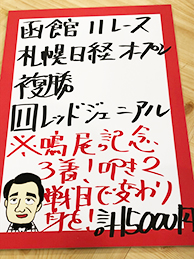 函館11レース
札幌日経オープン
複勝
11レッドジェニアル
※鳴尾記念、
3番!叩き2
戦目で変わり
身を!計15000円